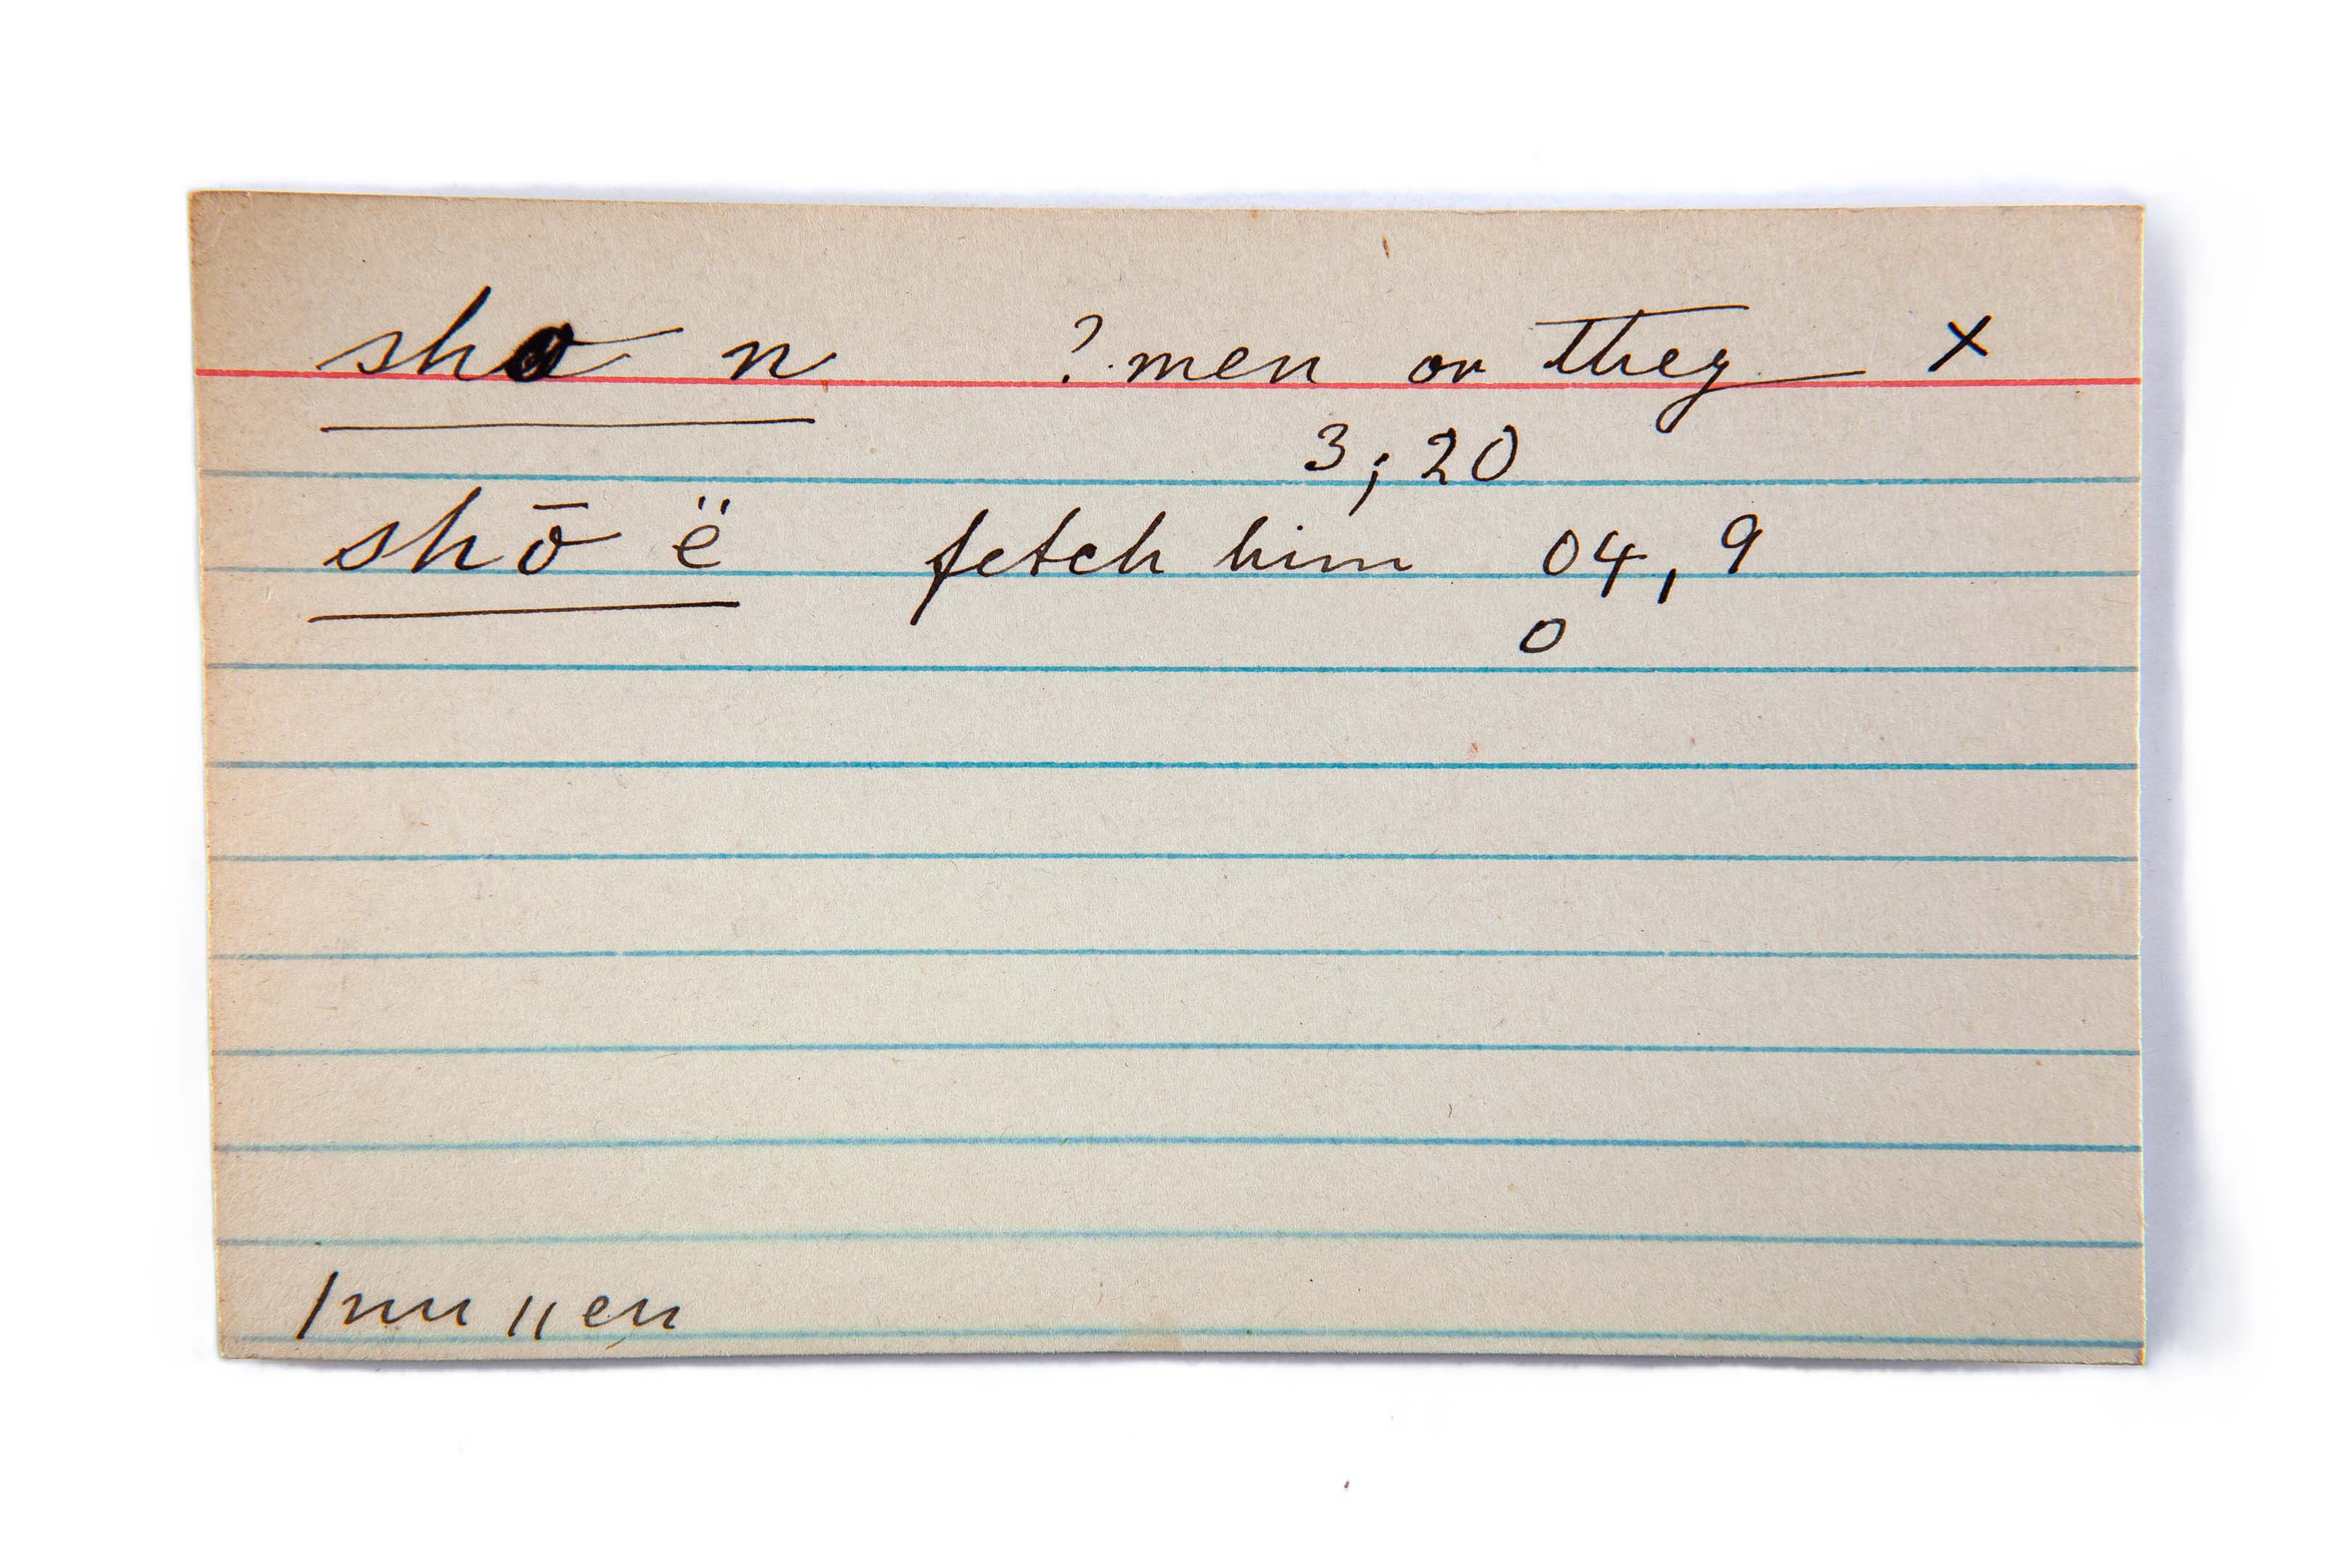 sho n ? men or they x
3; 20
shō ë fetch him 04, 9
0